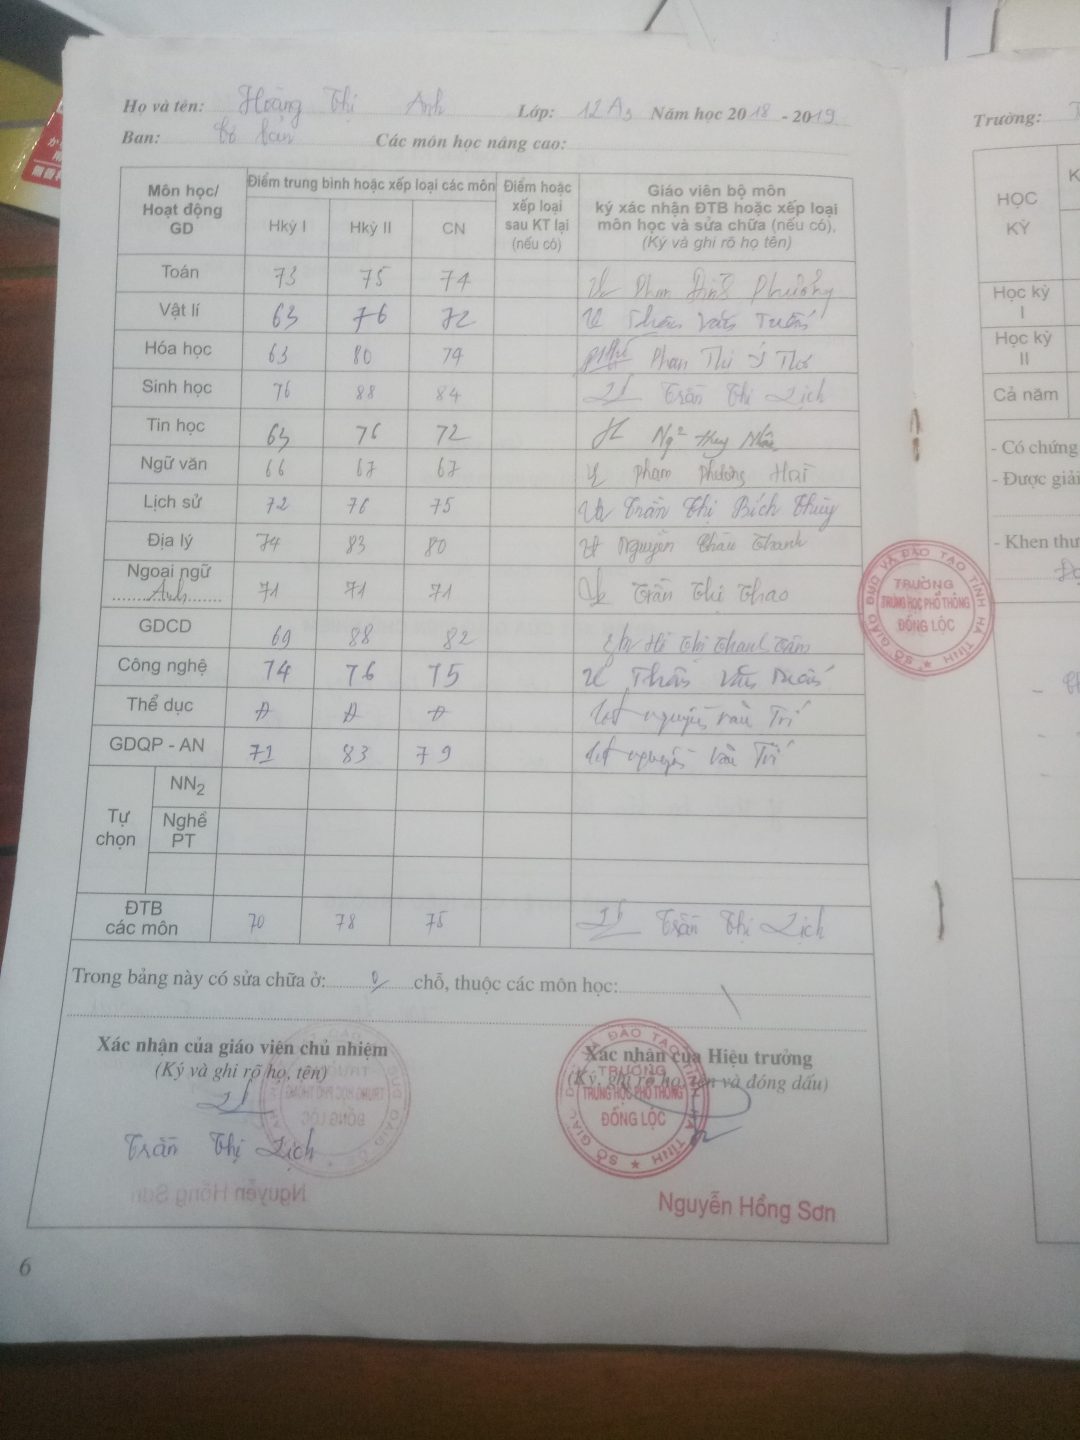 Họ và tên: Hoàng Thị Anh Lớp: 12A3 Năm học 2018 - 2019
Ban: Cơ bản Các môn học nâng cao:
Môn học/ Hoạt động GD
Điểm trung bình hoặc xếp loại các môn
Hkỳ I Hkỳ II CN
Điểm hoặc xếp loại sau KT lại (nếu có)
Giáo viên bộ môn ký xác nhận ĐTB hoặc xếp loại môn học và sửa chữa (nếu có), (Ký và ghi rõ họ tên)
Toán 73 75 74 Phan Đình Phương
Vật lí 63 76 72 Thân Văn Tuấn
Hóa học 63 80 74 Phan Thị Ý Thơ
Sinh học 76 88 84 Trần Thị Lịch
Tin học 63 76 72 Ng² Thuy
Ngữ văn 66 67 67 Phạm Phương Hài
Lịch sử 72 76 75 Trần Thị Bích Thủy
Địa lý 74 83 80 Nguyễn Châu Thanh
Ngoại ngữ Anh 71 71 71 Trần Thị Thao
GDCD 69 88 82 Thị Thanh Tâm
Công nghệ 74 76 75 Thân Văn Tuấn
Thể dục Đ Đ Đ nguyễn văn Trí
GDQP - AN 71 83 79 nguyễn văn Trí
Tự chọn
NN2
Nghề PT
ĐTB các môn 70 78 75 Trần Thị Lịch
Trong bảng này có sửa chữa ở: 0 chỗ, thuộc các môn học: \
Xác nhận của giáo viên chủ nhiệm
(Ký và ghi rõ họ, tên)
Trần Thị Lịch
Xác nhận của Hiệu trưởng
(Ký, ghi rõ họ, tên và đóng dấu)
SỞ GIÁO DỤC VÀ ĐÀO TẠO TỈNH HÀ TĨNH
TRƯỜNG
TRUNG HỌC PHỔ THÔNG
ĐỒNG LỘC
Nguyễn Hồng Sơn
6
SỞ GIÁO DỤC VÀ ĐÀO TẠO TỈNH HÀ TĨNH
TRƯỜNG
TRUNG HỌC PHỔ THÔNG
ĐỒNG LỘC
Trường:
HỌC KỲ
Học kỳ I
Học kỳ II
Cả năm
- Có chứng
- Được giải
- Khen thư